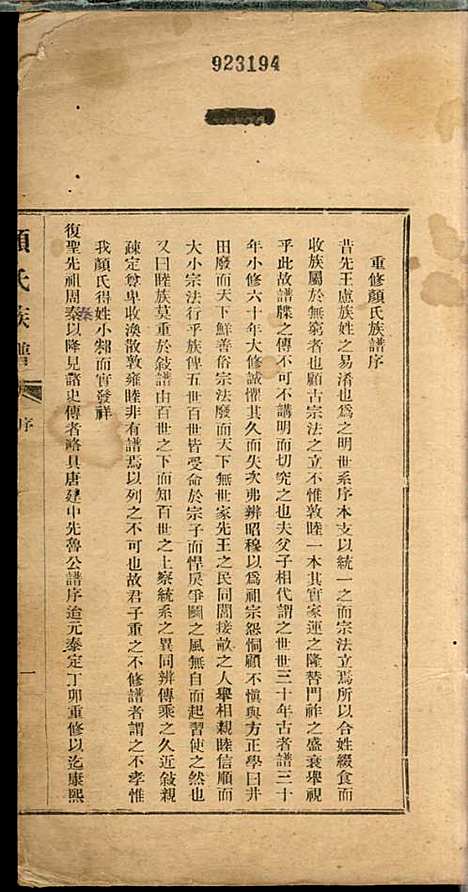 923194
重修顏氏族譜序
昔先王慮族姓之易淆也爲之明世系序本支以統一之而宗法立焉所以合姓綴食而
收族屬於無窮者也顧古宗法之立不惟敦睦一本其實家運之隆替門祚之盛衰舉視
乎此故譜牒之傳不可不講明而切究之也夫父子相代謂之世世三十年古者譜三十
年小修六十年大修誠懼其久而失次弗辨昭穆以爲祖宗怨恫顧不愼與方正學曰井
田廢而天下鮮善俗宗法廢而天下無世家先王之民同閭接畝之人舉相親睦信順而
大小宗法行乎族俾五世百世皆受命於宗子而悍戾爭鬭之風無自而起習使之然也
又曰睦族莫重於敍譜由百世之下而知百世之上察統系之異同辨傳乘之久近敍親
疎定尊卑收渙散敦雍睦非有譜焉以列之不可也故君子重之不修譜者謂之不孝惟
我顏氏得姓小邾而實發祥
復聖先祖周秦以降見諸史傳者略具唐建中先魯公譜序迨元泰定丁卯重修以迄康熙
秦
顏氏族譜
序
一